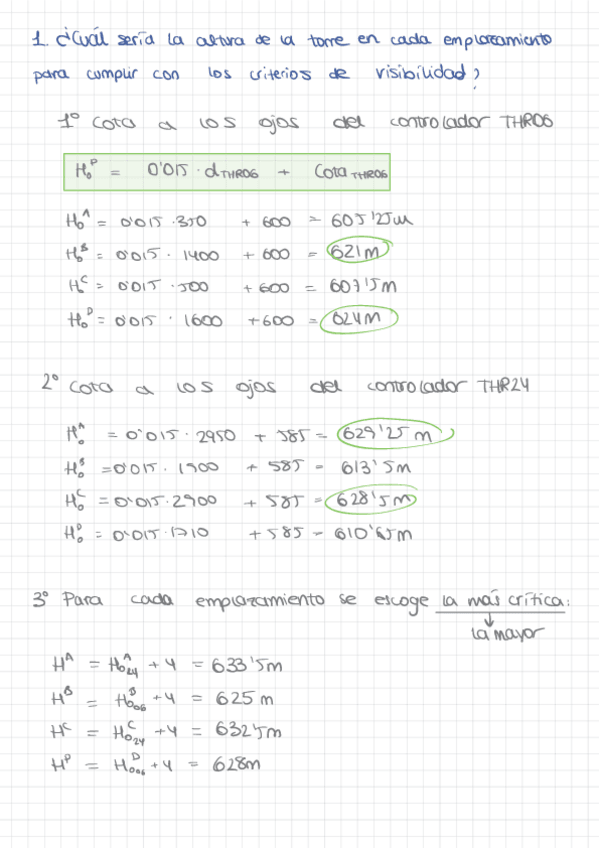 1. ¿Cuál sería la altura de la torre en cada emplazamiento
para cumplir con los criterios de visibilidad?
1º Cota a los ojos del controlador THR06
H₀ᴾ = 0'015 · dTHR06 + CotaTHR06
H₀ᴬ = 0'015 · 350 + 600 = 605'25m
H₀ᴮ = 0'015 · 1400 + 600 = 621m
H₀ᶜ = 0'015 · 500 + 600 = 607'5m
H₀ᴰ = 0'015 · 1600 + 600 = 624m
2º Cota a los ojos del controlador THR24
H₀ᴬ = 0'015 · 2950 + 585 = 629'25 m
H₀ᴮ = 0'015 · 1900 + 585 = 613'5m
H₀ᶜ = 0'015 · 2900 + 585 = 628'5m
H₀ᴰ = 0'015 · 1710 + 585 = 610'65m
3º Para cada emplazamiento se escoge la más crítica:
la mayor
Hᴬ = H₀ᴬ24 + 4 = 633'5m
Hᴮ = H₀ᴮ06 + 4 = 625 m
Hᶜ = H₀ᶜ24 + 4 = 632'5m
Hᴰ = H₀ᴰ06 + 4 = 628m